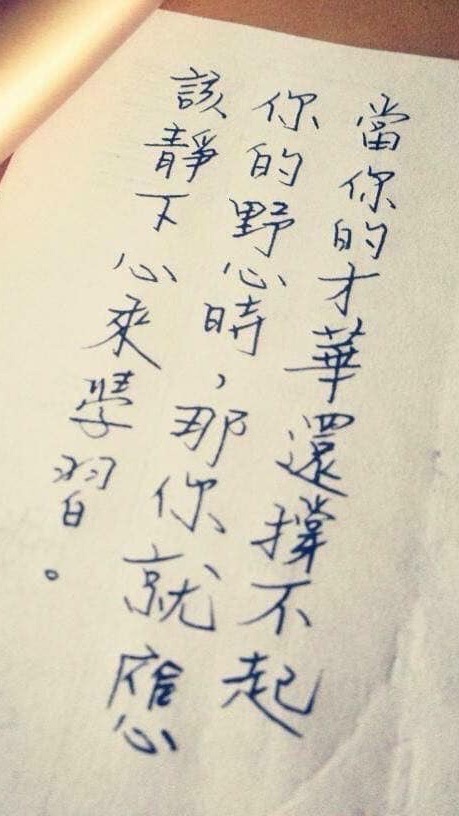 當你的才華還撐不起
你的野心時，那你就應
該靜下心來學習。